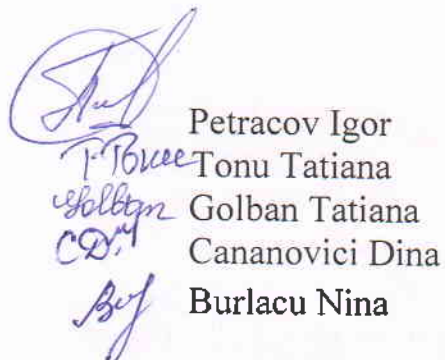 Petracov Igor
Tonu Tatiana
Golban Golban Tatiana
Cananovici Dina
Burlacu Nina